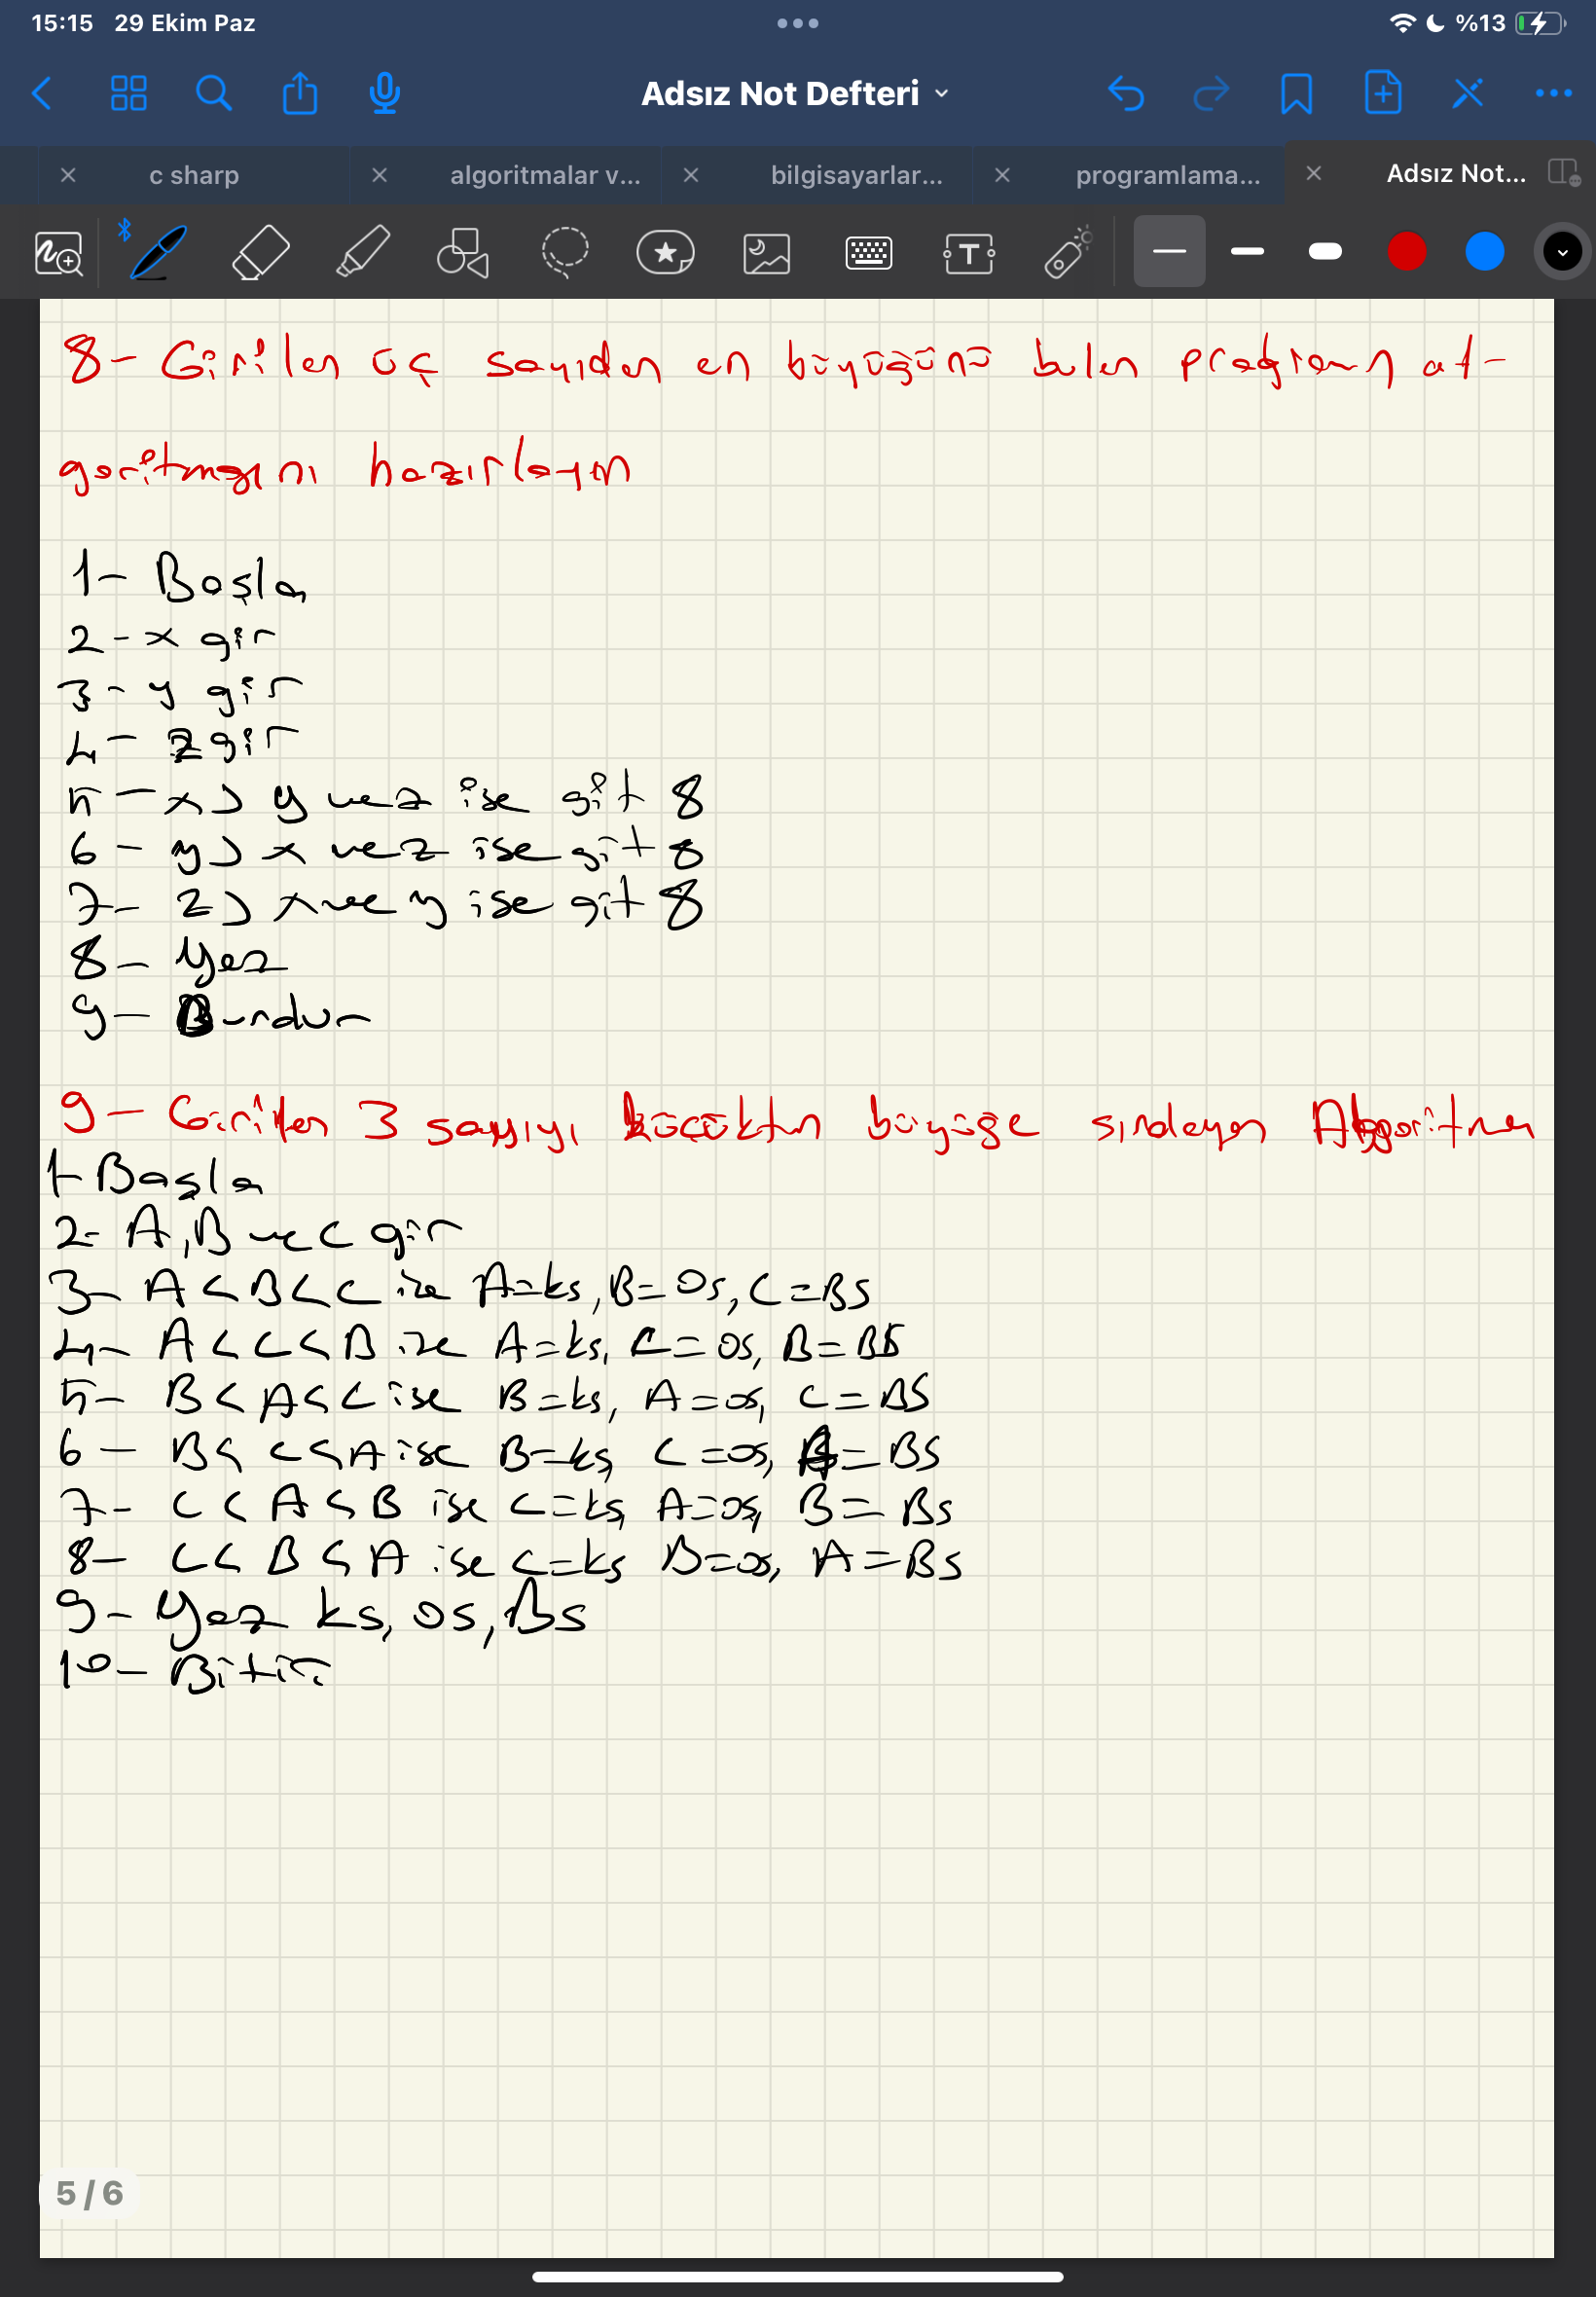 15:15 29 Ekim Paz %13
Adsız Not Defteri
c sharp algoritmalar v... bilgisayarlar... programlama... Adsız Not...
8- Girilen üç sayıdan en büyüğünü bulan program al-
goritmasını hazırlayın
1- Başla
2- x gir
3- y gir
4- z gir
5- x > y ve z ise git 8
6- y > x ve z ise git 8
7- z > x ve y ise git 8
8- Yaz
9- Durdur
9- Girilen 3 sayıyı küçükten büyüğe sıralayan Algoritma
1- Başla
2- A, B ve C gir
3- A < B < C ise A=ks, B=Os, C=BS
4- A < C < B ise A=ks, C=os, B=BS
5- B < A < C ise B=ks, A=os, C=BS
6- B < C < A ise B=ks, C=os, A=BS
7- C < A < B ise C=ks, A=os, B=Bs
8- C < B < A ise C=ks B=os, A=Bs
9- Yaz ks, os, Bs
10- Bitir
5 / 6